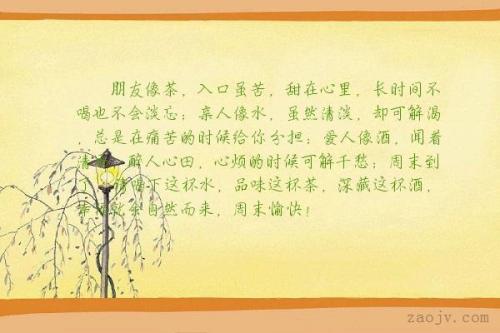 朋友像茶，入口虽苦，甜在心里，长时间不
喝也不会淡忘；亲人像水，虽然清淡，却可解渴
，总是在痛苦的时候给你分担；爱人像酒，闻着
清 醉人心田，心烦的时候可解千愁；周末到
请喝下这杯水，品味这杯茶，深藏这杯酒，
就会自然而来，周末愉快！
zaojv.com